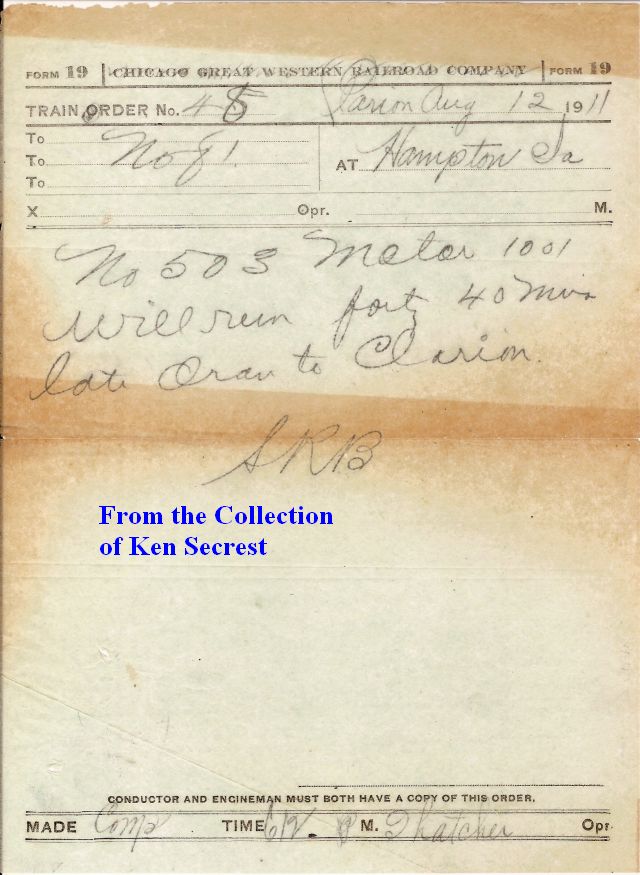 FORM 19 CHICAGO GREAT WESTERN RAILROAD COMPANY FORM 19
TRAIN ORDER No. 48 Clarion Aug 12 1911
To
To No 81.
To
AT Hampton Ia
X Opr. M.
No 503 Motor 1001
will run forty 40 mins
late Oran to Clarion.
SRB
From the Collection
of Ken Secrest
CONDUCTOR AND ENGINEMAN MUST BOTH HAVE A COPY OF THIS ORDER.
MADE Comp TIME 612 P M. Thatcher Opr